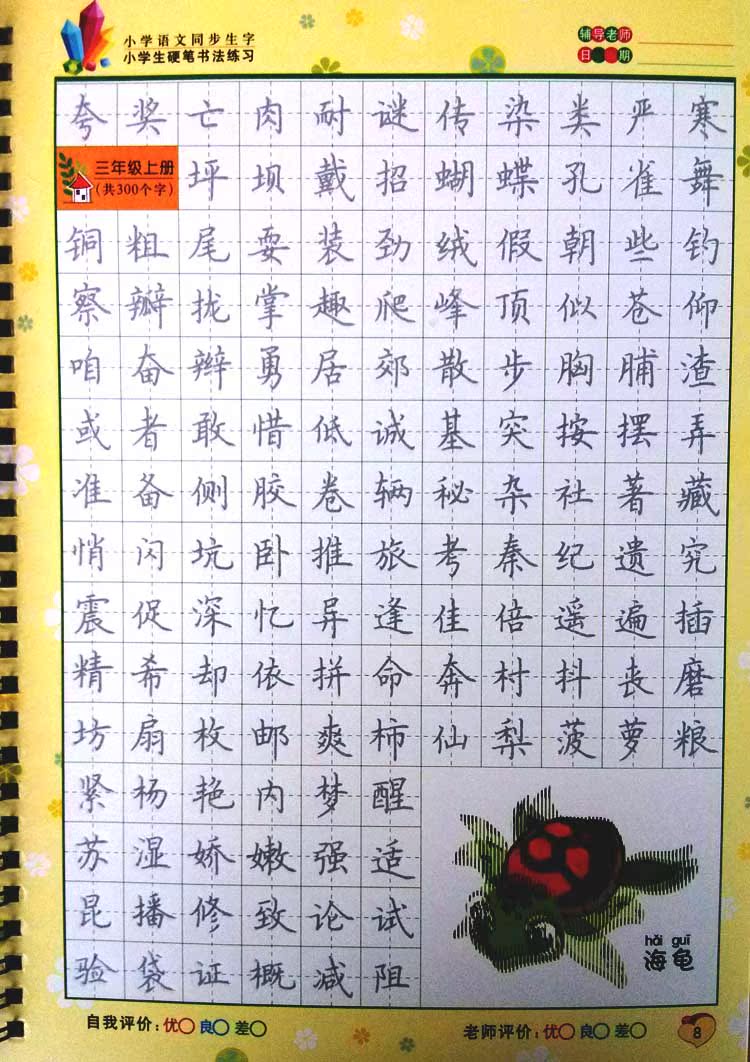 小学语文同步生字
小学生硬笔书法练习
辅导老师
日期
夸奖亡肉耐谜传染类严寒
三年级上册
(共300个字)
坪坝戴招蝴蝶孔雀舞
铜粗尾耍装劲绒假朝些钓
察瓣拢掌趣爬峰顶似苍仰
咱奋辫勇居郊散步胸脯渣
或者敢惜低诚基突按摆弄
准备侧胶卷辆秘杂社著藏
悄闪坑卧推旅考秦纪遗究
震促深忆异逢佳倍遥遍插
精希却依拼命奔村抖丧磨
坊扇枚邮爽柿仙梨菠萝粮
紧杨艳内梦醒
苏湿娇嫩强适
昆播修致论试
验袋证概减阻
hǎi guī
海龟
自我评价:优○ 良○ 差○
老师评价:优○ 良○ 差○
8